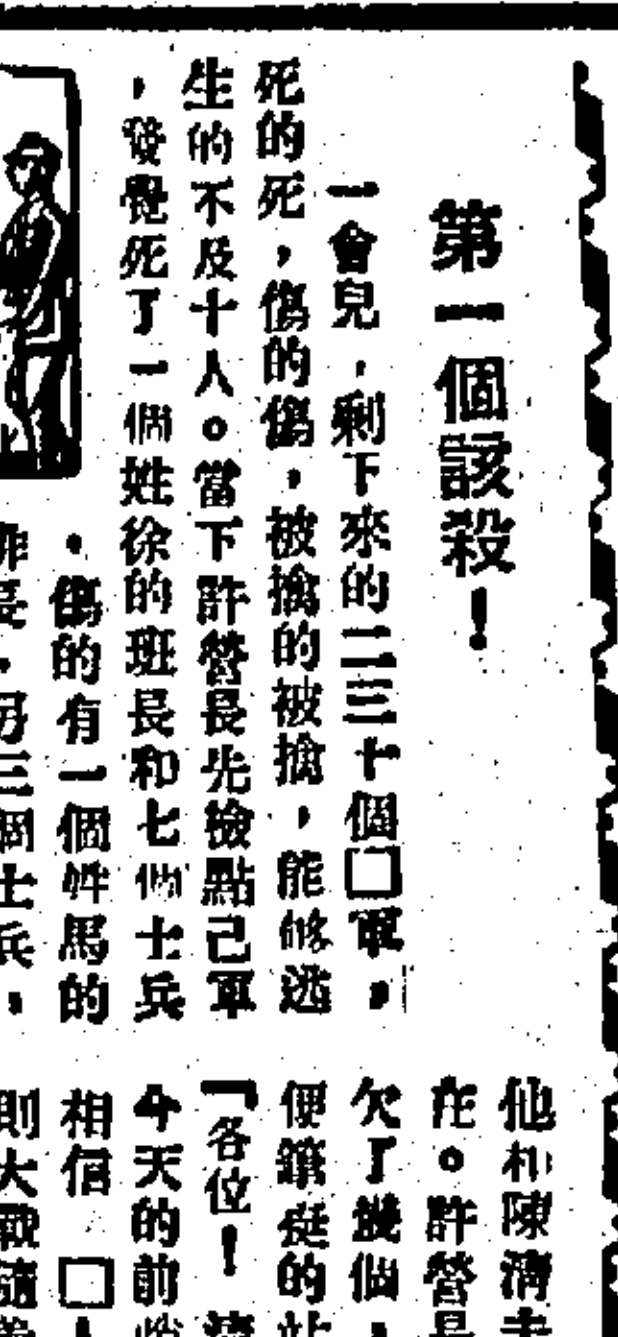 第一個該殺！
一會兒，剩下來的二三十個□軍，
死的死，傷的傷，被擒的被擒，能够逃
生的不及十人。當下許營長先檢點己軍
，發覺死了一個姓徐的班長和七個士兵
，傷的有一個姓馬的
排長，另三個士兵，
他和陳濟
在。許營長
欠了幾個，
便鎮挺的站
「各位！
今天的前
相信□人
則大戰隨